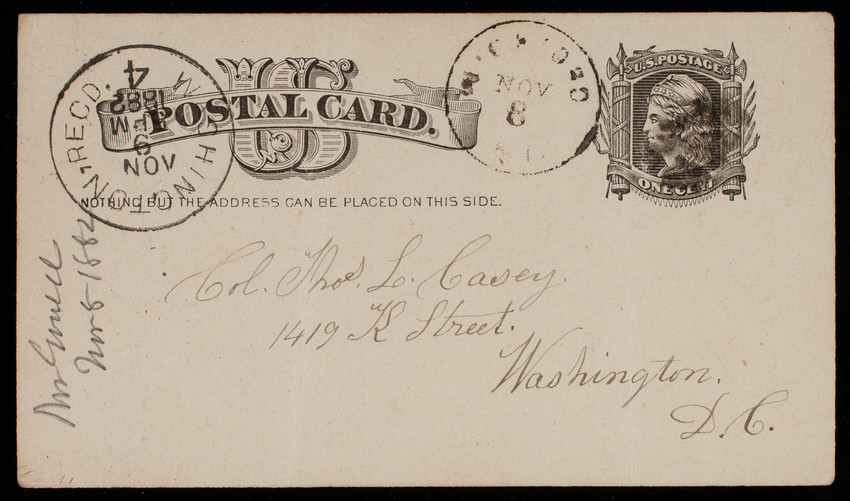 U S
POSTAL CARD.
NOTHING BUT THE ADDRESS CAN BE PLACED ON THIS SIDE.
WASHINGTON, REC'D.
NOV
9
M
1882
4
NOV
8
U.S. POSTAGE
ONE CENT
Col. Thos. L. Casey.
1419 K Street.
Washington.
D.C.
Nov 8 1882